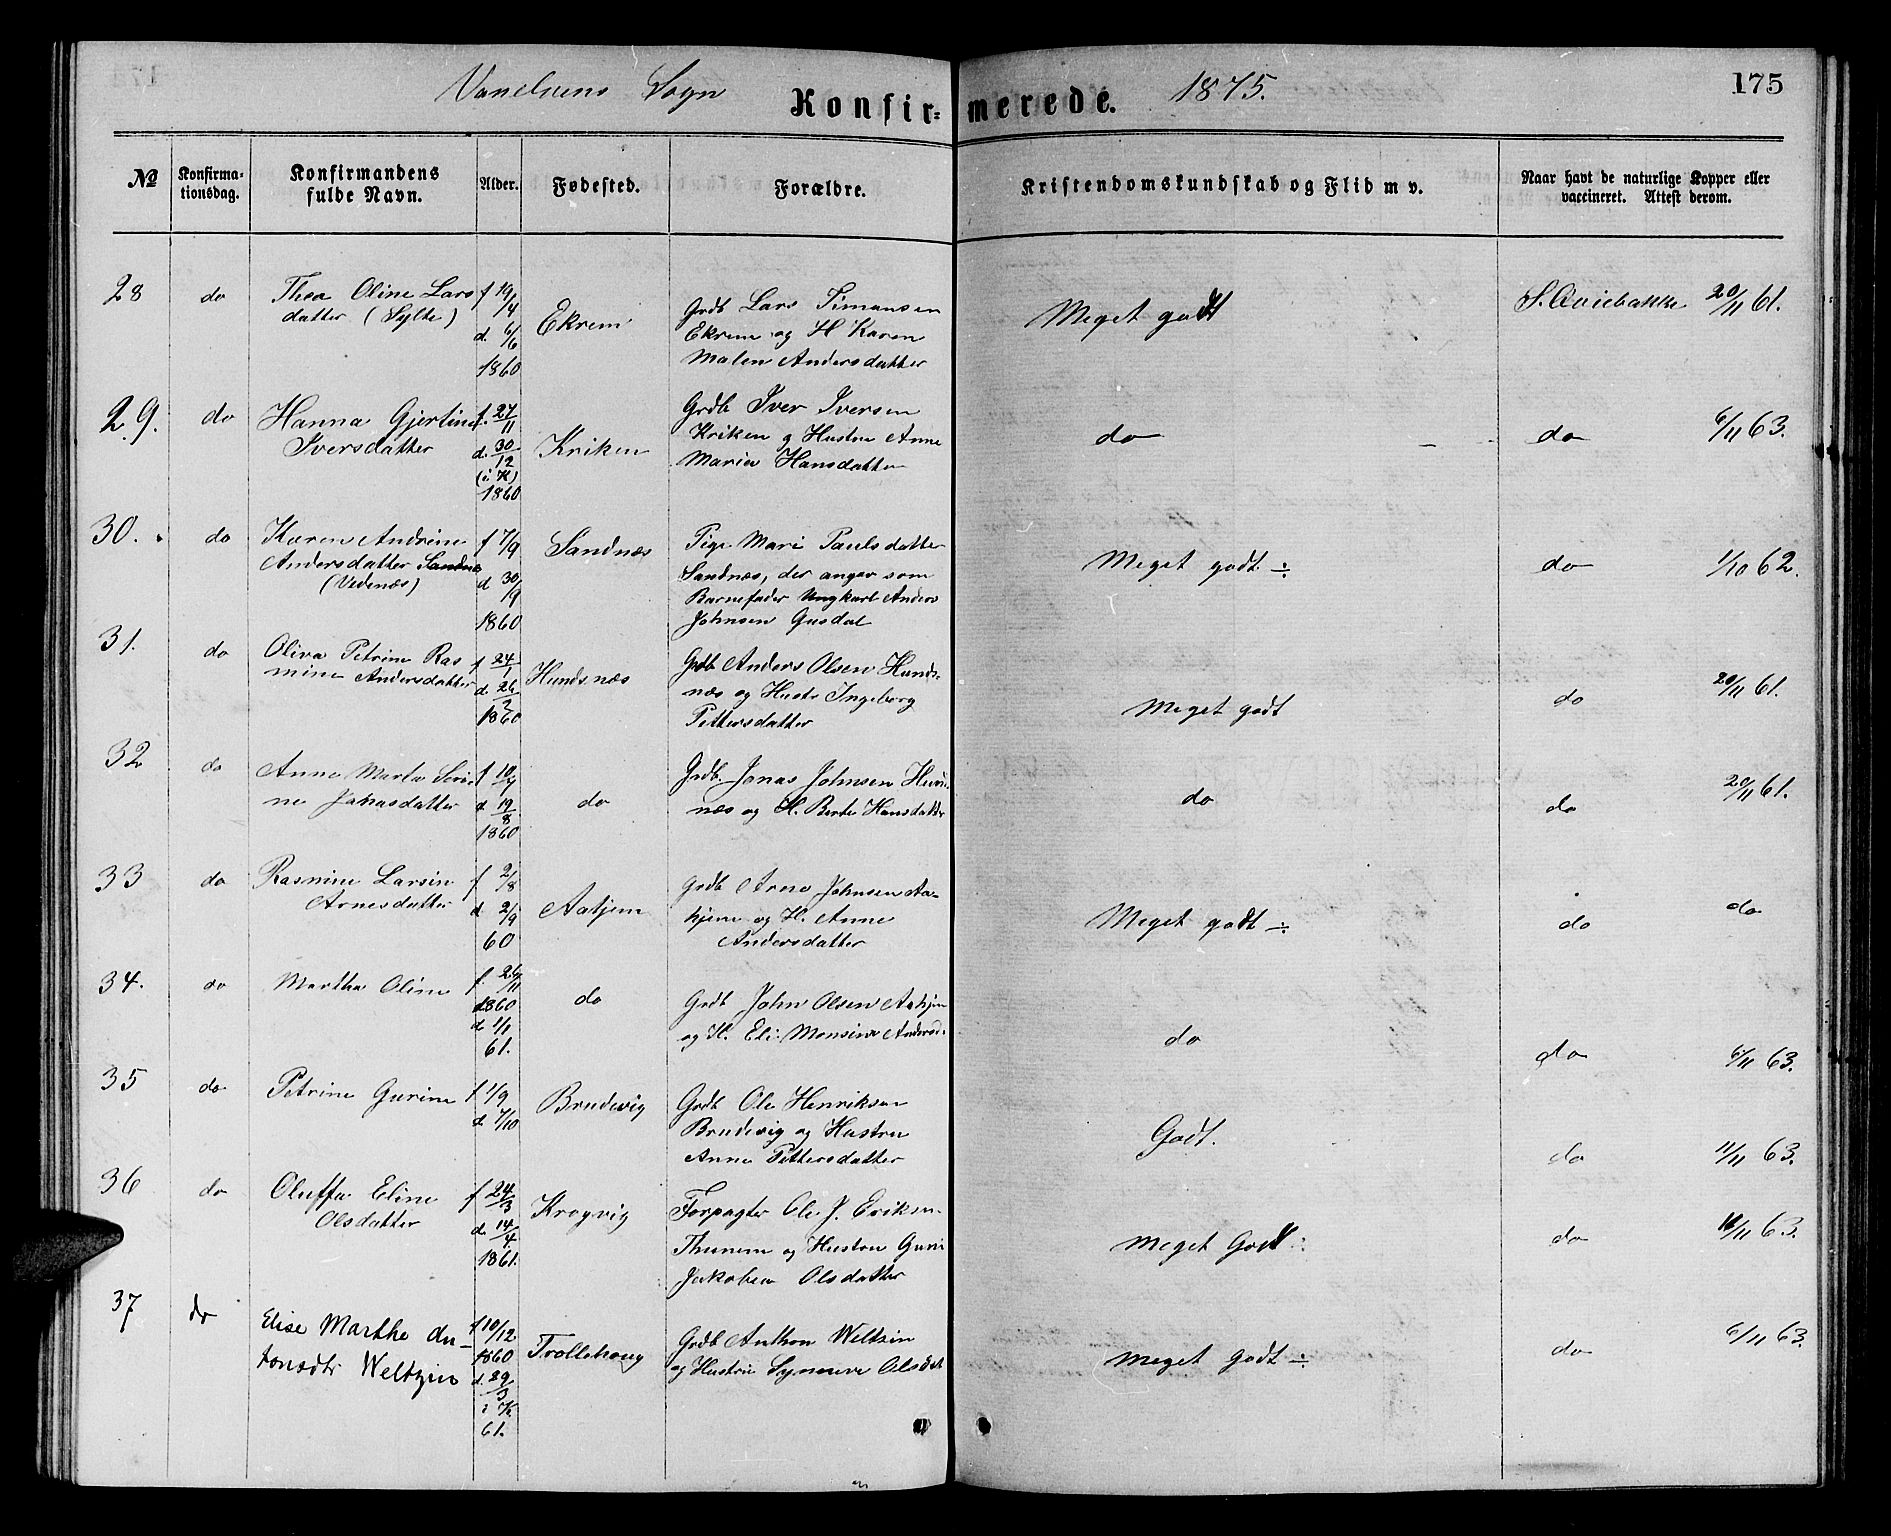 Vanelvens Sogn Konfir= merede. 1875. 175
№ Konfirma-tionsdag. Konfirmandens fulde Navn. Alder. Fødested. Forældre. Kristendomskundskab og Flid m v. Naar havt de naturlige Kopper eller vaccineret. Attest derom.
28 do Thea Oline Lars f 19/4 Ekrem Grdb Lars Timansen Meget godt S. Qviebakke 20/11 61.
datter (Sylte) d. 6/6 Ekrem og H Karen
1860 Malen Andersdatter
29. do Hanna Gjertine f. 27/11 Kriken Grdb Iver Iversen do do 6/11 63.
Iversdatter d. 30/12 Kriken g Hustru Anne
(i K) Maria Hansdatter
1860
30. do Karen Andrine f 7/9 Sandnæs Pige Mari Paulsdatter Meget godt ÷ do 1/10 62.
Andersdatter Sandnæs d 30/9 Sandnæs, der angav som
(Vedenæs) Barnefader Ungkarl Anders
1860 Johnsen Gusdal
31. do Oliva Petrine Ras f 24/1 Hundsnæs Grdb Anders Olsen Hunds- Meget godt do 20/11 61.
mine Andersdatter d. 26/2 næs og Hustr Ingeborg
1860 Pettersdatter
32 do Anne Marta Seri f 10/7 do Grdb. Jonas Johnsen do do 20/11 61.
ne Jonasdatter d 19/8 næs og H. Berte Hansdatter
1860
33 do Rasmine Larsin f 2/8 Aahjem Grdb Arne Johnsen Aa- Meget godt ÷ do do
Arnesdatter d 2/9 hjem og H. Anne
60 Andersdatter
34. do Martha Oline f. 26/11 do Grdb John Olsen Aahjem do do 6/11 63.
1860 og H. Eli Monsine Andersd.
d 1/1
61.
35 do Petrine Gurine f 1/9 Brudevig Grdb Ole Henriksen Godt. do 11/11 63.
d 7/10 Brudevig og Hustru
Anne Pettersdatter
36 do Oluffa Eline f 24/3 Krogvig Forpagter Ole J. Eriksen Meget Godt ÷ do 11/11 63.
Olsdatter d. 14/4 Thunem og Hustru Guri
1861. Jakobea Olsdatter
37 do Elise Marthe An- f 10/12 Trollehoug Grdb Anthon Weltzin Meget godt ÷ do 6/11 63.
tonsdtr Weltzin 1860 og Hustru Synneve Olsdat
d. 29/3
i K
61.